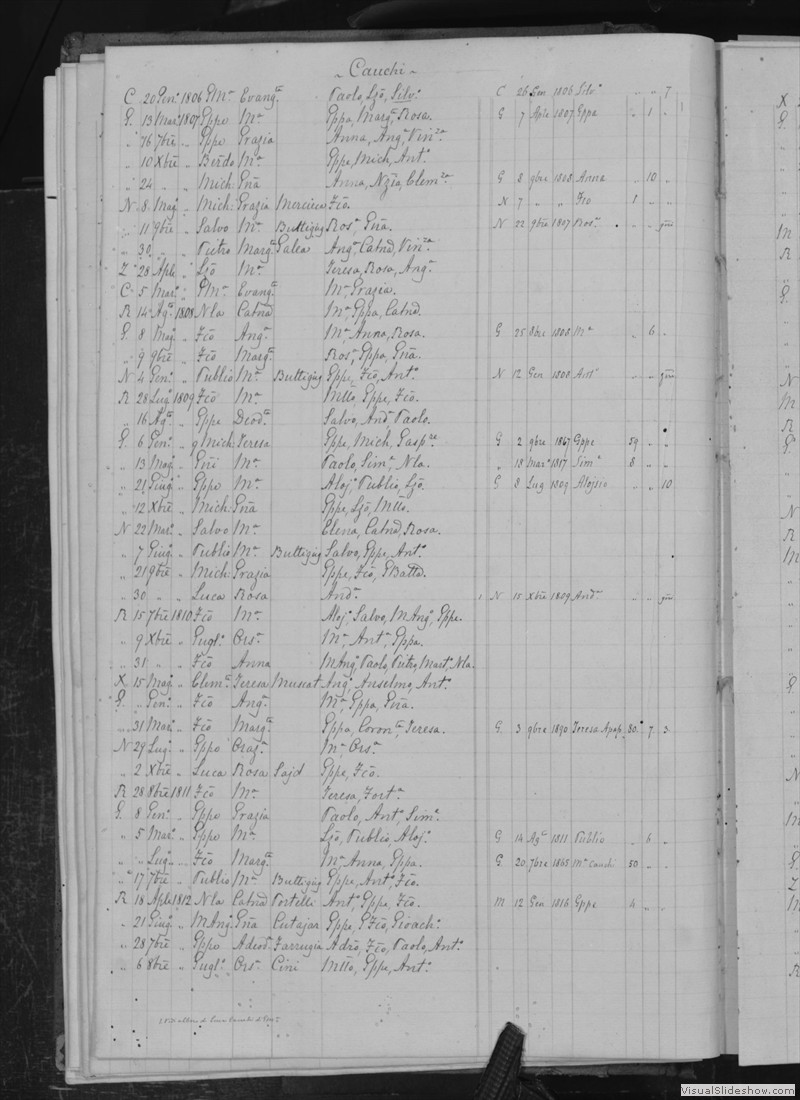 ~ Cauchi ~
C 20 Gen.o 1806 GMa Evang.ta Paolo, Ljõ, Silv.o C 26 Gen 1806 Silv.o " " 7
G. 13 Mar.o 1807 Gppe M.a Gppa, Marg.a Rosa. G 7 Aple 1807 Gppa " 1 "
" 16 7bre " Gppe Grazia Anna, Ang.a Vin.za
" 10 Xbre " Berdo M.a Gppe, Mich, Ant.o
" 24 " " Mich: Gña Anna, Nzia, Clem.za G 8 9bre 1808 Anna " 10 "
N 8 Mag.o " Mich: Grazia Mercieca Fco. N 7 " " Fco 1 " "
" 11 9bre " Salvo M.a Buttigieg Ros.a, Gña. N 22 9bre 1807 Ros.a
" 30 " " Pietro Marg.ta Galea Ang.a Catnd, Vin.za
Z 28 Aple " Ljõ M.a Teresa, Rosa, Ang.a
C 5 Mar.o " GMa Evang.ta M.a, Grazia.
R 14 Ag.o 1808 Nla Catnd M.a, Gppa, Catnd.
G. 8 Mag.o " Fco Ang.a M.a, Anna, Rosa. G 25 8bre 1808 M.a " 6 "
" 9 9bre " Fco Marg.ta Ros.a, Gppa, Gña.
N 4 Gen.o " Publio M.a Buttigieg Gppe, Fco, Ant.o N 12 Gen 1808 Ant.o
R 28 Lug.o 1809 Fco M.a Mtto, Gppe, Fco.
" 16 Ag.o " Gppe Deod.a Salvo, And.a Paolo.
G. 6 Gen.o " q Mich: Teresa Gppe, Mich, Gasp.re G 2 9bre 1867 Gppe 59 " "
" 13 Mag.o " Gni M.a Paolo, Sim.e Nla. " 18 Mar.o 1817 Sim.e 8 " "
" 21 Giug.o " Gppe M.a Aloj.o Publio, Ljõ. G 8 Lug 1809 Aloisio " " 10
" 12 Xbre " Mich: Gña Gppe, Ljõ, Mtto.
N 22 Mar.o " Salvo M.a Elena, Catnd, Rosa.
" 7 Giug.o " Publio M.a Buttigieg Salvo, Gppe, Ant.o
" 21 9bre " Mich: Grazia Gppe, Fco, GBatta.
" 30 " " Luca Rosa And.a N 15 Xbre 1809 And.a
R 15 7bre 1810 Fco M.a Aloj.o Salvo, MAng.o, Gppe.
" 9 Xbre " Gugl.o Ors.a M.a, Ant.a, Gppa.
" 31 " " Fco Anna MAng.o Paolo, Pietro, Mart.o, Nla.
X 15 Mag.o " Clem.e Teresa Muscat Ang.o Anselmo, Ant.o
G. " Gen.o " Fco Ang.a M.a, Gppa, Gña.
" 31 Mag.o " Fco Marg.ta Gppa, Coron.ta, Teresa. G 3 9bre 1890 Teresa Apap. 80 7 3
N 29 Lug.o " Gppe Oraz.a M.a, Ors.a
" 2 Xbre " Luca Rosa Sajd Gppe, Fco.
R 28 8bre 1811 Fco M.a Teresa, Fort.a
G. 8 Gen.o " Gppe Grazia Paolo, Ant.o, Sim.e
" 5 Mar.o " Gppe M.a Ljõ, Publio, Aloj.o G 14 Ag.o 1811 Publio " 6 "
" " Lug.o " Fco Marg.ta M.a, Anna, Gppa. G 20 7bre 1865 M.a Cauchi 50 " "
" 17 7bre " Publio M.a Buttigieg Gppe, Ant.o, Fco.
R 18 Aple 1812 Nla Catnd Portelli Ant.o, Gppe, Fco. M 12 Gen 1816 Gppe 4 " "
" 21 Giug.o " MAng.o Gña Cutajar Gppe, GFco, Gioach.o
" 28 7bre " Gppe Adeod.a Farrugia Adrõ, Fco, Paolo, Ant.o
" 6 8bre " Gugl.o Ors.a Cini Mtto, Gppe, Ant.o
VisualSlideshow.com